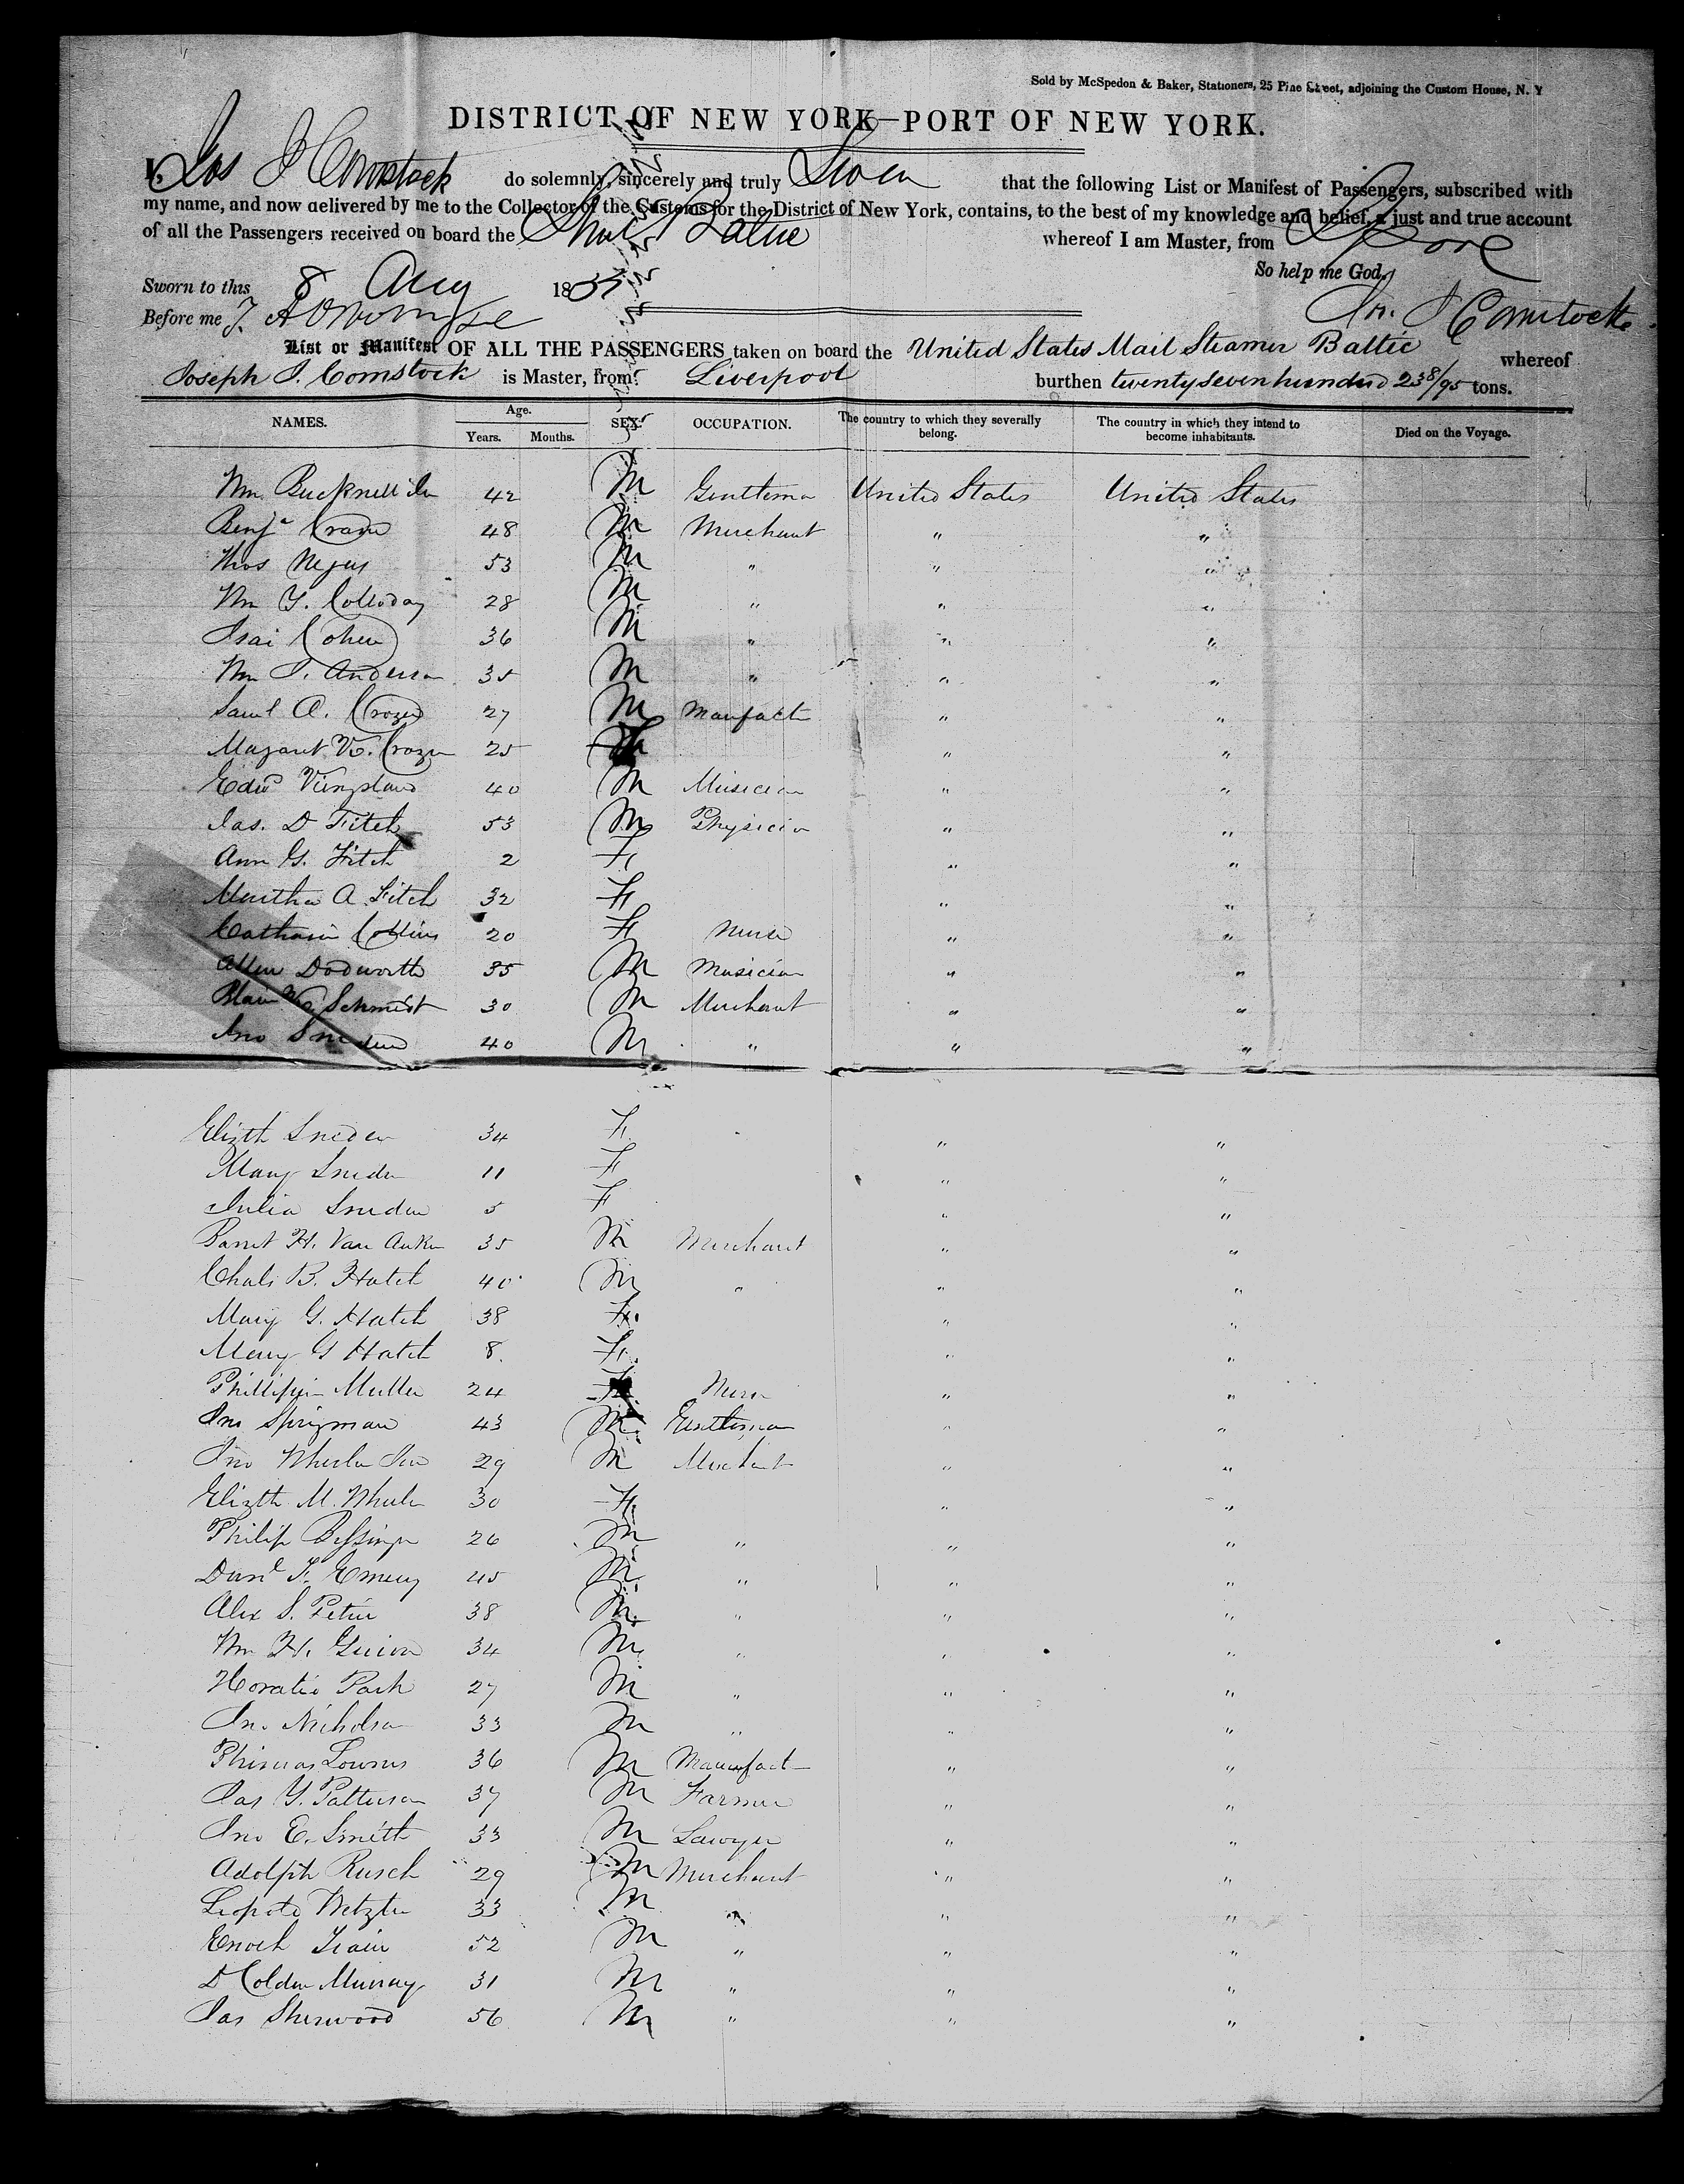 Sold by McSpedon & Baker, Stationers, 25 Pine Street, adjoining the Custom House, N. Y
DISTRICT OF NEW YORK—PORT OF NEW YORK.
I, Jos J Comstock do solemnly, sincerely and truly Swear that the following List or Manifest of Passengers, subscribed with
my name, and now delivered by me to the Collector of the Customs for the District of New York, contains, to the best of my knowledge and belief, a just and true account
of all the Passengers received on board the Baltic whereof I am Master, from Lpool
So help me God.
Sworn to this 8 Aug 185
Before me Jos. J Comstock
List or Manifest OF ALL THE PASSENGERS taken on board the United States Mail Steamer Baltic whereof
Joseph J. Comstock is Master, from Liverpool burthen twenty seven hundred 23 8/95 tons.
NAMES. Age. Years. Months. SEX. OCCUPATION. The country to which they severally belong. The country in which they intend to become inhabitants. Died on the Voyage.
Wm Bucknell Jn 42 M Gentleman United States United States
Benja Crane 48 M Merchant " "
Thos Negus 53 M " " "
Wm Y. Colloday 28 M " " "
Isai Cohen 36 M " " "
Wm J. Anderson 35 M " " "
Saml A. Crozer 27 M Manfactr " "
Magaret Crozer 25 " "
Edwd 40 M Musician " "
Jas. D Fitch 53 M Physician " "
Ann G. Fitch 2 F " "
Martha A. Fitch 32 F " "
Catharin Collins 20 F Nurse " "
Allen Dodworth 35 M Musician " "
Schmidt 30 M Merchant " "
Jno Sneden 40 M " " "
Elizth Sneden 34 F " "
Mary Sneden 11 F " "
Julia Sneden 5 F " "
Barret H. Van Auken 35 M Merchant " "
Chals B. Hatch 40 M " " "
Mary G. Hatch 38 F. " "
Mary G Hatch 8. F. " "
Phillipin Muller 24 F Nurse " "
Jno Sprigman 43 M Gentleman " "
Jno Wheeler Jun 29 M Merchant " "
Elizth M. Wheeler 30 F. " "
Philip 26 M " " "
Danl F. Emery 45 M " " "
Alex S. Peters 38 M " " "
Wm H. Guion 34 M " " "
Horatio Park 27 M " " "
Jno Nicholson 33 M " " "
Phineas Lownes 36 M Manufact " "
Jas Y. Patterson 37 M Farmer " "
Jno E. Smith 33 M Lawyer " "
Adolph Rusch 29 M Merchant " "
Leopold Wetzler 33 M " " "
Enoch Train 52 M " " "
D Colden Murray 31 M " " "
Jas Sherwood 56 M " " "